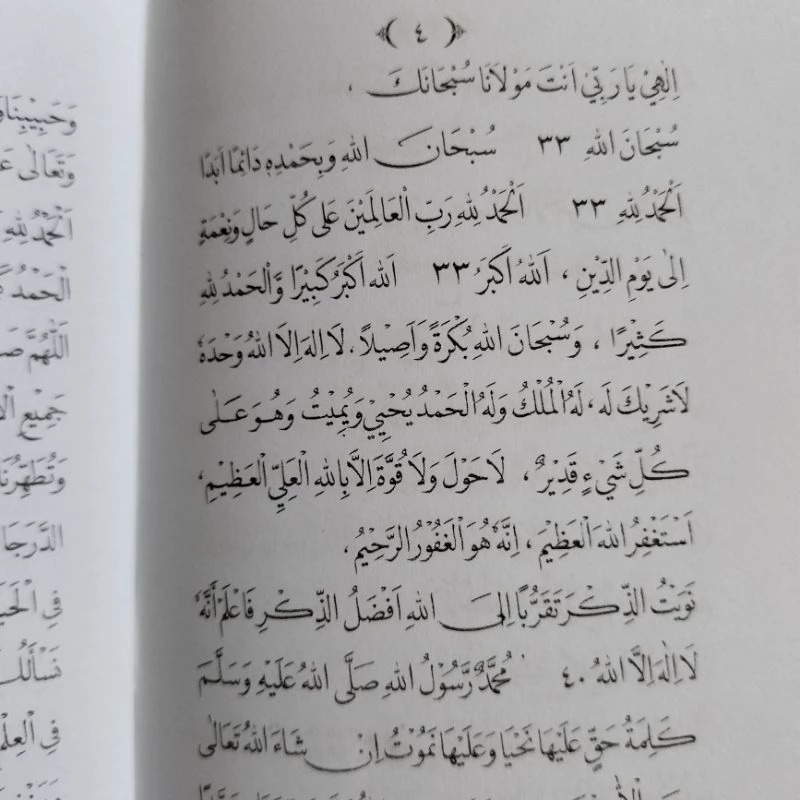 ﴿ ٤ ﴾
اِلٰهِيْ يَارَبِّيْ اَنْتَ مَوْلَانَا سُبْحَانَكَ .
سُبْحَانَ اللهِ ٣٣ سُبْحَانَ اللهِ وَبِحَمْدِهٖ دَائِمًا اَبَدًا
اَلْحَمْدُ لِلّٰهِ ٣٣ اَلْحَمْدُ لِلّٰهِ رَبِّ الْعَالَمِيْنَ عَلٰى كُلِّ حَالٍ وَنِعْمَةٍ
اِلٰى يَوْمِ الدِّيْنِ ، اَللهُ اَكْبَرُ ٣٣ اَللهُ اَكْبَرُ كَبِيْرًا وَّالْحَمْدُ لِلّٰهِ
كَثِيْرًا ، وَسُبْحَانَ اللهِ بُكْرَةً وَاَصِيْلًا . لَا اِلٰهَ اِلَّا اللهُ وَحْدَهٗ
لَا شَرِيْكَ لَهٗ ، لَهُ الْمُلْكُ وَلَهُ الْحَمْدُ يُحْيِيْ وَيُمِيْتُ وَهُوَ عَلٰى
كُلِّ شَيْءٍ قَدِيْرٌ ، لَا حَوْلَ وَلَا قُوَّةَ اِلَّا بِاللهِ الْعَلِيِّ الْعَظِيْمِ ،
اَسْتَغْفِرُ اللهَ الْعَظِيْمَ ، اِنَّهٗ هُوَ الْغَفُوْرُ الرَّحِيْمُ .
نَوَيْتُ الذِّكْرَ تَقَرُّبًا اِلَى اللهِ اَفْضَلُ الذِّكْرِ فَاعْلَمْ اَنَّهٗ
لَا اِلٰهَ اِلَّا اللهُ ٤٠ مُحَمَّدٌ رَّسُوْلُ اللهِ صَلَّى اللهُ عَلَيْهِ وَسَلَّمَ
كَلِمَةُ حَقٍّ عَلَيْهَا نَحْيَا وَعَلَيْهَا نَمُوْتُ اِنْ شَاءَ اللهُ تَعَالٰى
وَحَبِيْبِنَا
وَتَعَالٰى
اَلْحَمْدُ لِلّٰهِ
اَلْحَمْدُ
اَللّٰهُمَّ
جَمِيْعِ
وَتُطَهِّرُنَا
فِي
نَسْأَلُكَ
فِي الْعِلْمِ